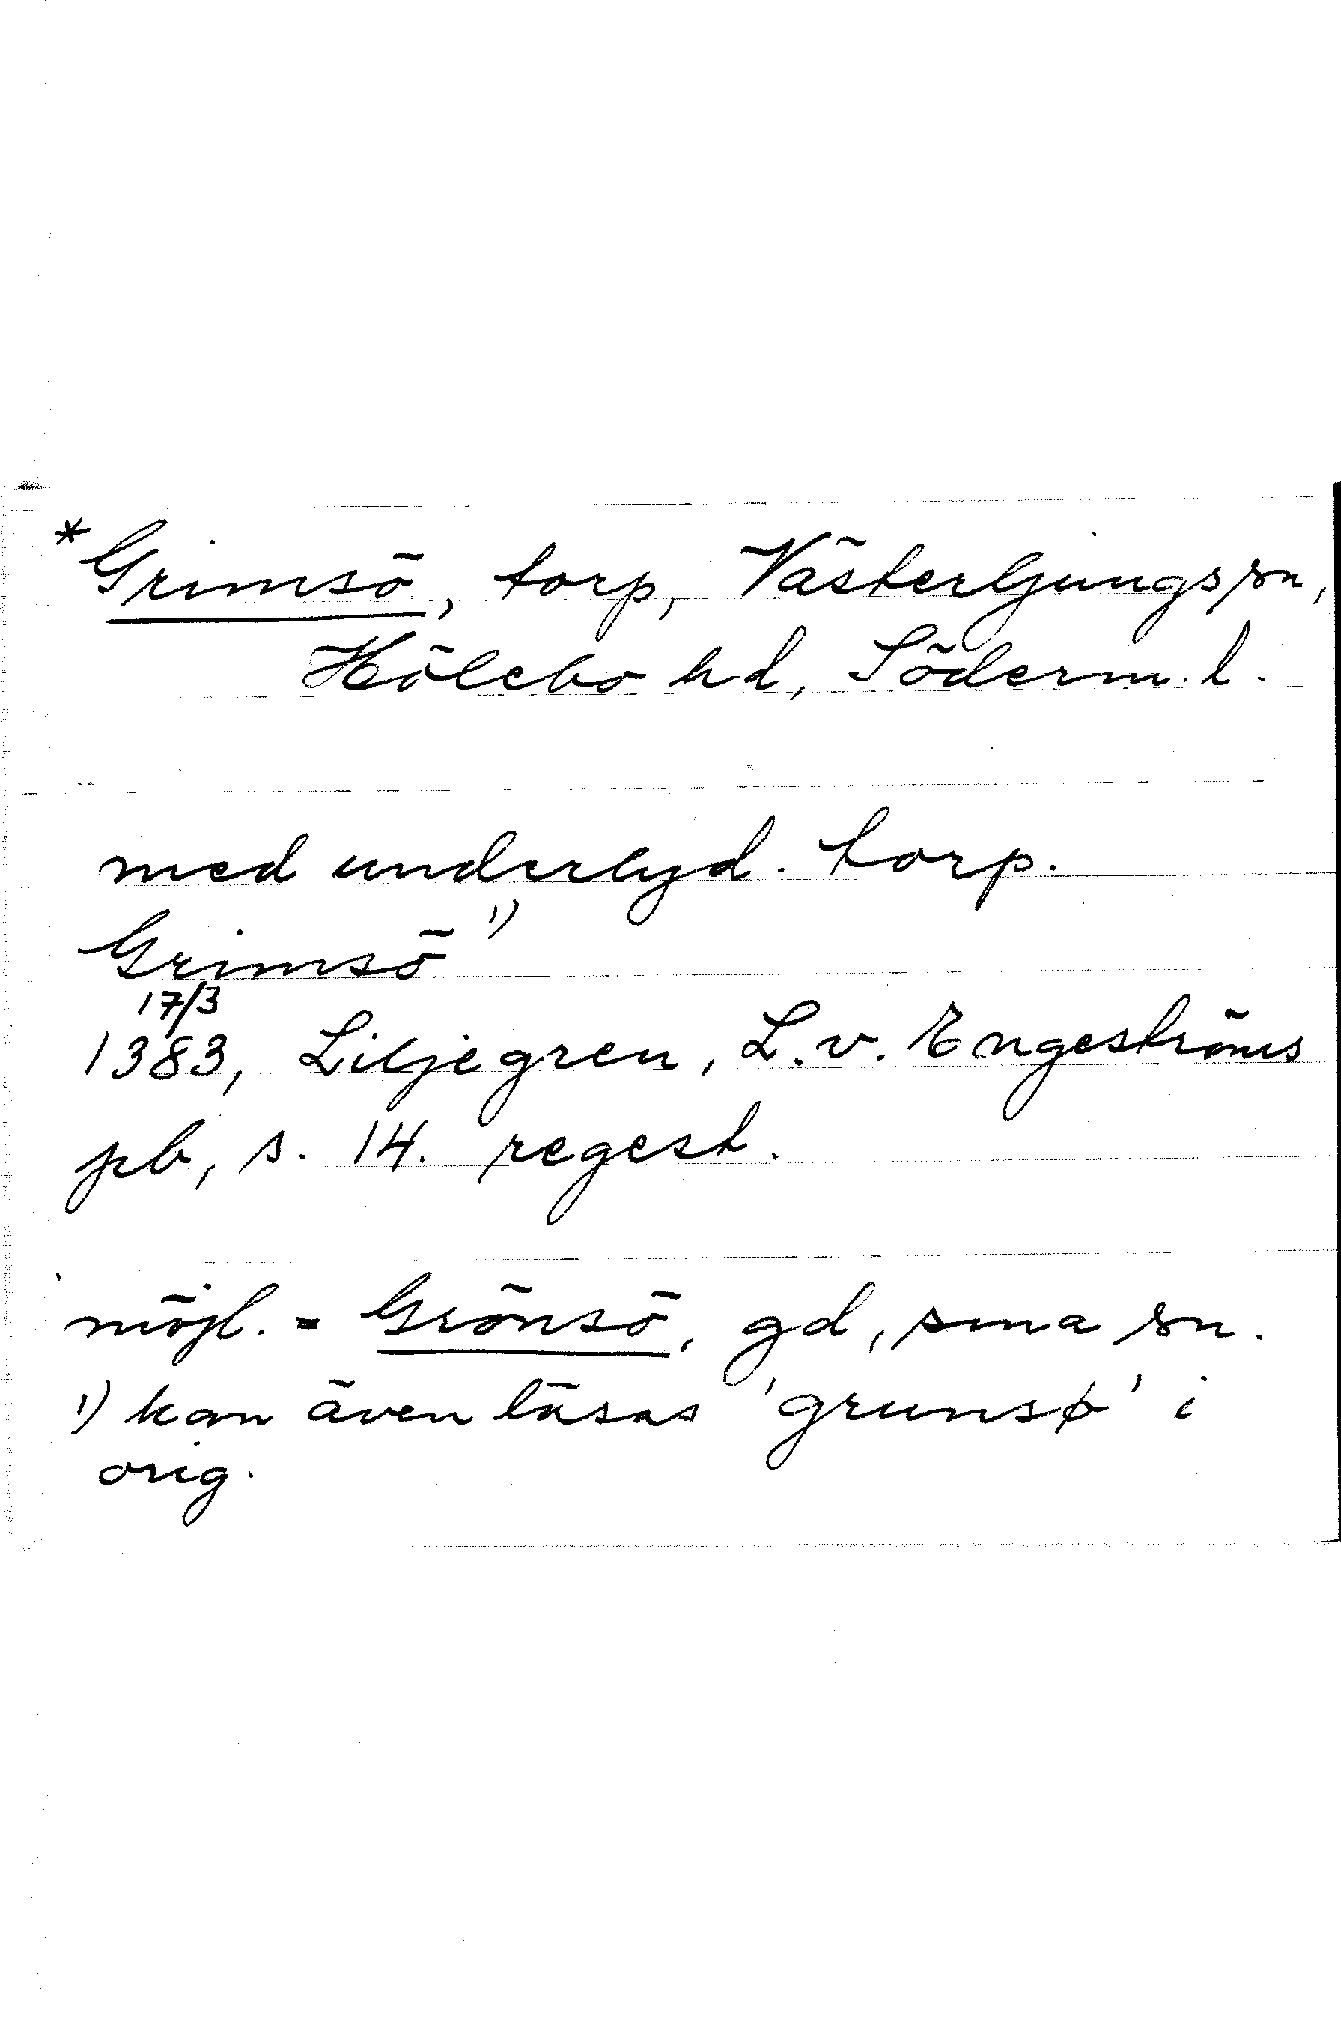 *Grimsö, torp, Västerljungs sn,
Hölebo hd, Söderm. l.
med underlyd. torp.
Grimsö 1)
17/3
1383, Liljegren, L. v. Engeströms
pb, s. 14. regest.
möjl. = Grönsö, gd, sma sn.
1) kan även läsas 'grunsø' i
orig.